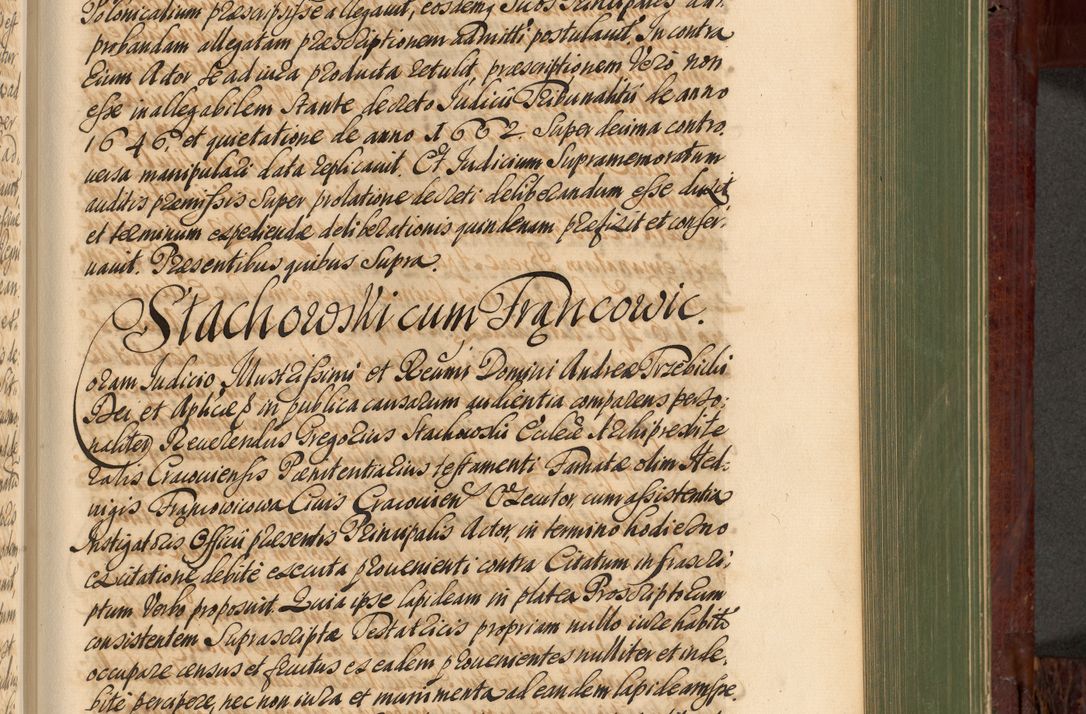 Polonicalium præscripsisse allegauit, eosdemq; suos Principales ad
probandam allegatam præscriptionem admitti postulauit. In contra
rium Actor se ad iura producta retulit, præscriptionem Vero non
esse inallegabilem stante decreto Judicii Tribunalitii de anno
1646. et quietatione de anno 1662. Super decima contro,
uersa manipulari data replicauit. Et Judicium Supramemoratum
auditis præmissis Super prolatione decreti deliberandum esse duxit
et terminum expediendæ deliberationis quindenam præfixit et conser,
uauit. Præsentibus quibus Supra.
Stachowski cum Francowic.
Coram Judicio Illustrissimi et Reuermi Domini Andreæ Trzebicki
Dei et Aplicæ in publica causarum audientia comparens perso,
naliter Reuerendus Gregorius Stachowski Ecclæ Archipresbite
ralis Cracouiensis Pænitentiarius testamenti Famatæ olim Hed,
uigis Francowicowa Ciuis Cracouien Executor, cum assistentia
Instigatoris Officii præsentis Principalis Actor, in termino hodierno
ex citatione debite executa prouenienti contra Citatum infrascri,
ptum Verbo proposuit. Quia ipse lapideam in platea Proscriptorum
consistentem Suprascriptæ Testatricis propriam nullo iure habito
occupare census et fructus ex eadem prouenientes nulliter et inde,
bite percipere, nec non iura et munimenta ad eandem lapideam spe,